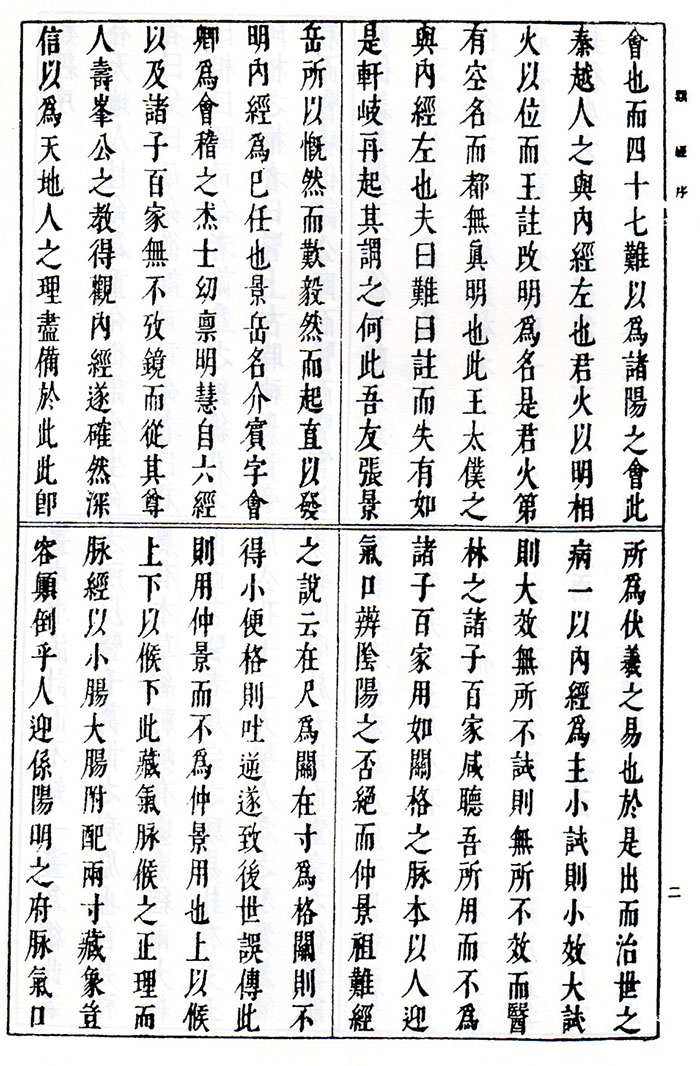 類經序
會也而四十七難以爲諸陽之會此
秦越人之與內經左也君火以明相
火以位而王註改明爲名是君火第
有空名而都無眞明也此王太僕之
與內經左也夫曰難曰註而失有如
是軒岐再起其謂之何此吾友張景
岳所以慨然而歎毅然而起直以發
明內經爲已任也景岳名介賓字會
卿爲會稽之杰士幼禀明慧自六經
以及諸子百家無不攷鏡而從其尊
人壽峯公之教得觀內經遂確然深
信以爲天地人之理盡備於此此卽
所爲伏羲之易也於是出而治世之
病一以內經爲主小試則小效大試
則大效無所不試則無所不效而醫
林之諸子百家咸聽吾所用而不爲
諸子百家用如關格之脉本以人迎
氣口辨陰陽之否絕而仲景祖難經
之說云在尺爲關在寸爲格關則不
得小便格則吐逆遂致後世誤傳此
則用仲景而不爲仲景用也上以候
上下以候下此藏氣脉候之正理而
脉經以小腸大腸附配兩寸藏象豈
容顚倒乎人迎係陽明之府脉氣口
二